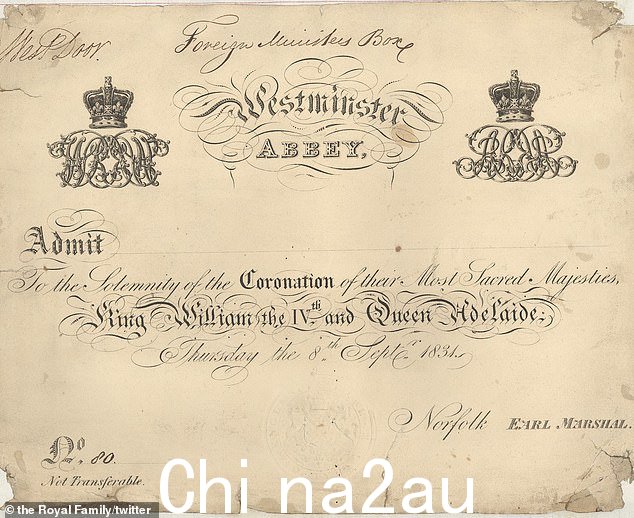 West Door.
Foreign Ministers Box
Westminster
ABBEY,
Admit
To the Solemnity of the Coronation of their Most Sacred Majesties,
King William the IVth. and Queen Adelaide.
Thursday the 8th Septr. 1831.
Norfolk EARL MARSHAL.
No. 80.
Not Transferable.
Chi na2au
© the Royal Family/twitter